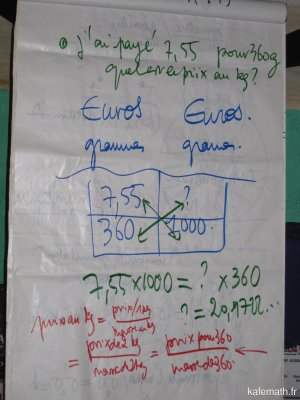 j'ai payé 7,55 pour 360g
quel est le prix au kg ?
Euros Euros.
grammes gramm.
7,55 ?
360 1000.
7,55 x 1000 = ? x 360
? = 20,9722...
prix au kg = prix/1kg
=
prix pour 360
masse de 360.
kafemath.fr